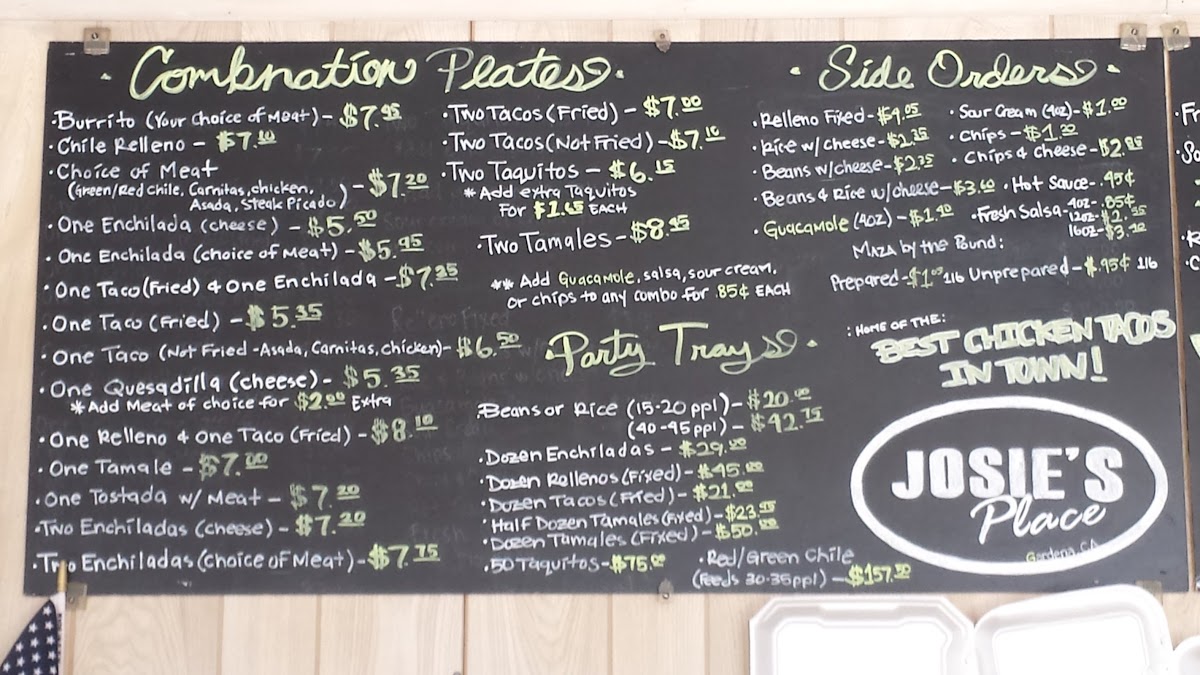 Combination Plates
· Burrito (Your Choice of Meat) - $7.95
· Chile Relleno - $7.10
· Choice of Meat
(Green/Red Chile, Carnitas, chicken,
Asada, Steak Picado) - $7.20
· One Enchilada (cheese) - $5.50
· One Enchilada (choice of Meat) - $5.95
· One Taco (Fried) & One Enchilada - $7.25
· One Taco (Fried) - $5.35
· One Taco (Not Fried - Asada, Carnitas, chicken) - $6.50
· One Quesadilla (cheese) - $5.35
*Add Meat of choice for $2.00 Extra
· One Relleno & One Taco (Fried) - $8.10
· One Tamale - $7.00
· One Tostada w/ Meat - $7.20
· Two Enchiladas (cheese) - $7.20
· Two Enchiladas (Choice of Meat) - $7.75
· Two Tacos (Fried) - $7.00
· Two Tacos (Not Fried) - $7.10
· Two Taquitos - $6.15
* Add extra Taquitos
For $1.65 EACH
· Two Tamales - $8.95
** Add Guacamole, salsa, sour cream,
or chips to any combo for .85¢ EACH
· Party Trays ·
· Beans or Rice (15-20 ppl) - $20.00
(40-45 ppl) - $42.75
· Dozen Enchiladas - $29.00
· Dozen Rollenos (Fixed) - $45.00
· Dozen Tacos (Fried) - $21.00
· Half Dozen Tamales (Fixed) - $23.95
· Dozen Tamales (Fixed) - $50.00
· 50 Taquitos - $75.00
· Red/Green Chile
(Feeds 30-35 ppl) - $157.50
· Side Orders ·
· Relleno Fixed - $4.05
· Rice w/ cheese - $2.35
· Beans w/cheese - $2.35
· Beans & Rice w/cheese - $3.60
· Guacamole (4oz) - $1.90
· Sour Cream (4oz) - $1.00
· Chips - $1.20
· Chips & Cheese - $2.85
· Hot Sauce - .45¢
· Fresh Salsa - 4oz - .85¢
12oz - $2.35
16oz - $3.10
Maza by the Pound:
Prepared - $1.05 lb Unprepared - $.95¢ lb
: HOME OF THE:
BEST CHICKEN TACOS
IN TOWN!
JOSIE'S
Place
Gardena, CA